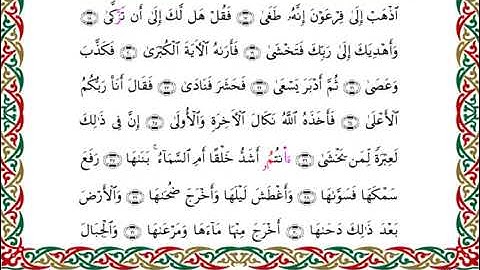 ٱذْهَبْ إِلَىٰ فِرْعَوْنَ إِنَّهُۥ طَغَىٰ فَقُلْ هَل لَّكَ إِلَىٰ أَن تَزَّكَّىٰ
وَأَهْدِيَكَ إِلَىٰ رَبِّكَ فَتَخْشَىٰ فَأَرَىٰهُ ٱلْأٓيَةَ ٱلْكُبْرَىٰ فَكَذَّبَ
وَعَصَىٰ ثُمَّ أَدْبَرَ يَسْعَىٰ فَحَشَرَ فَنَادَىٰ فَقَالَ أَنَا۠ رَبُّكُمُ
ٱلْأَعْلَىٰ فَأَخَذَهُ ٱللَّهُ نَكَالَ ٱلْأٓخِرَةِ وَٱلْأُولَىٰ إِنَّ فِى ذَٰلِكَ
لَعِبْرَةً لِّمَن يَخْشَىٰ ءَا۬نتُمُۥ أَشَدُّ خَلْقًا أَمِ ٱلسَّمَآءُ ۚ بَنَىٰهَا رَفَعَ
سَمْكَهَا فَسَوَّىٰهَا وَأَغْطَشَ لَيْلَهَا وَأَخْرَجَ ضُحَىٰهَا وَٱلْأَرْضَ
بَعْدَ ذَٰلِكَ دَحَىٰهَا أَخْرَجَ مِنْهَا مَآءَهَا وَمَرْعَىٰهَا وَٱلْجِبَالَ